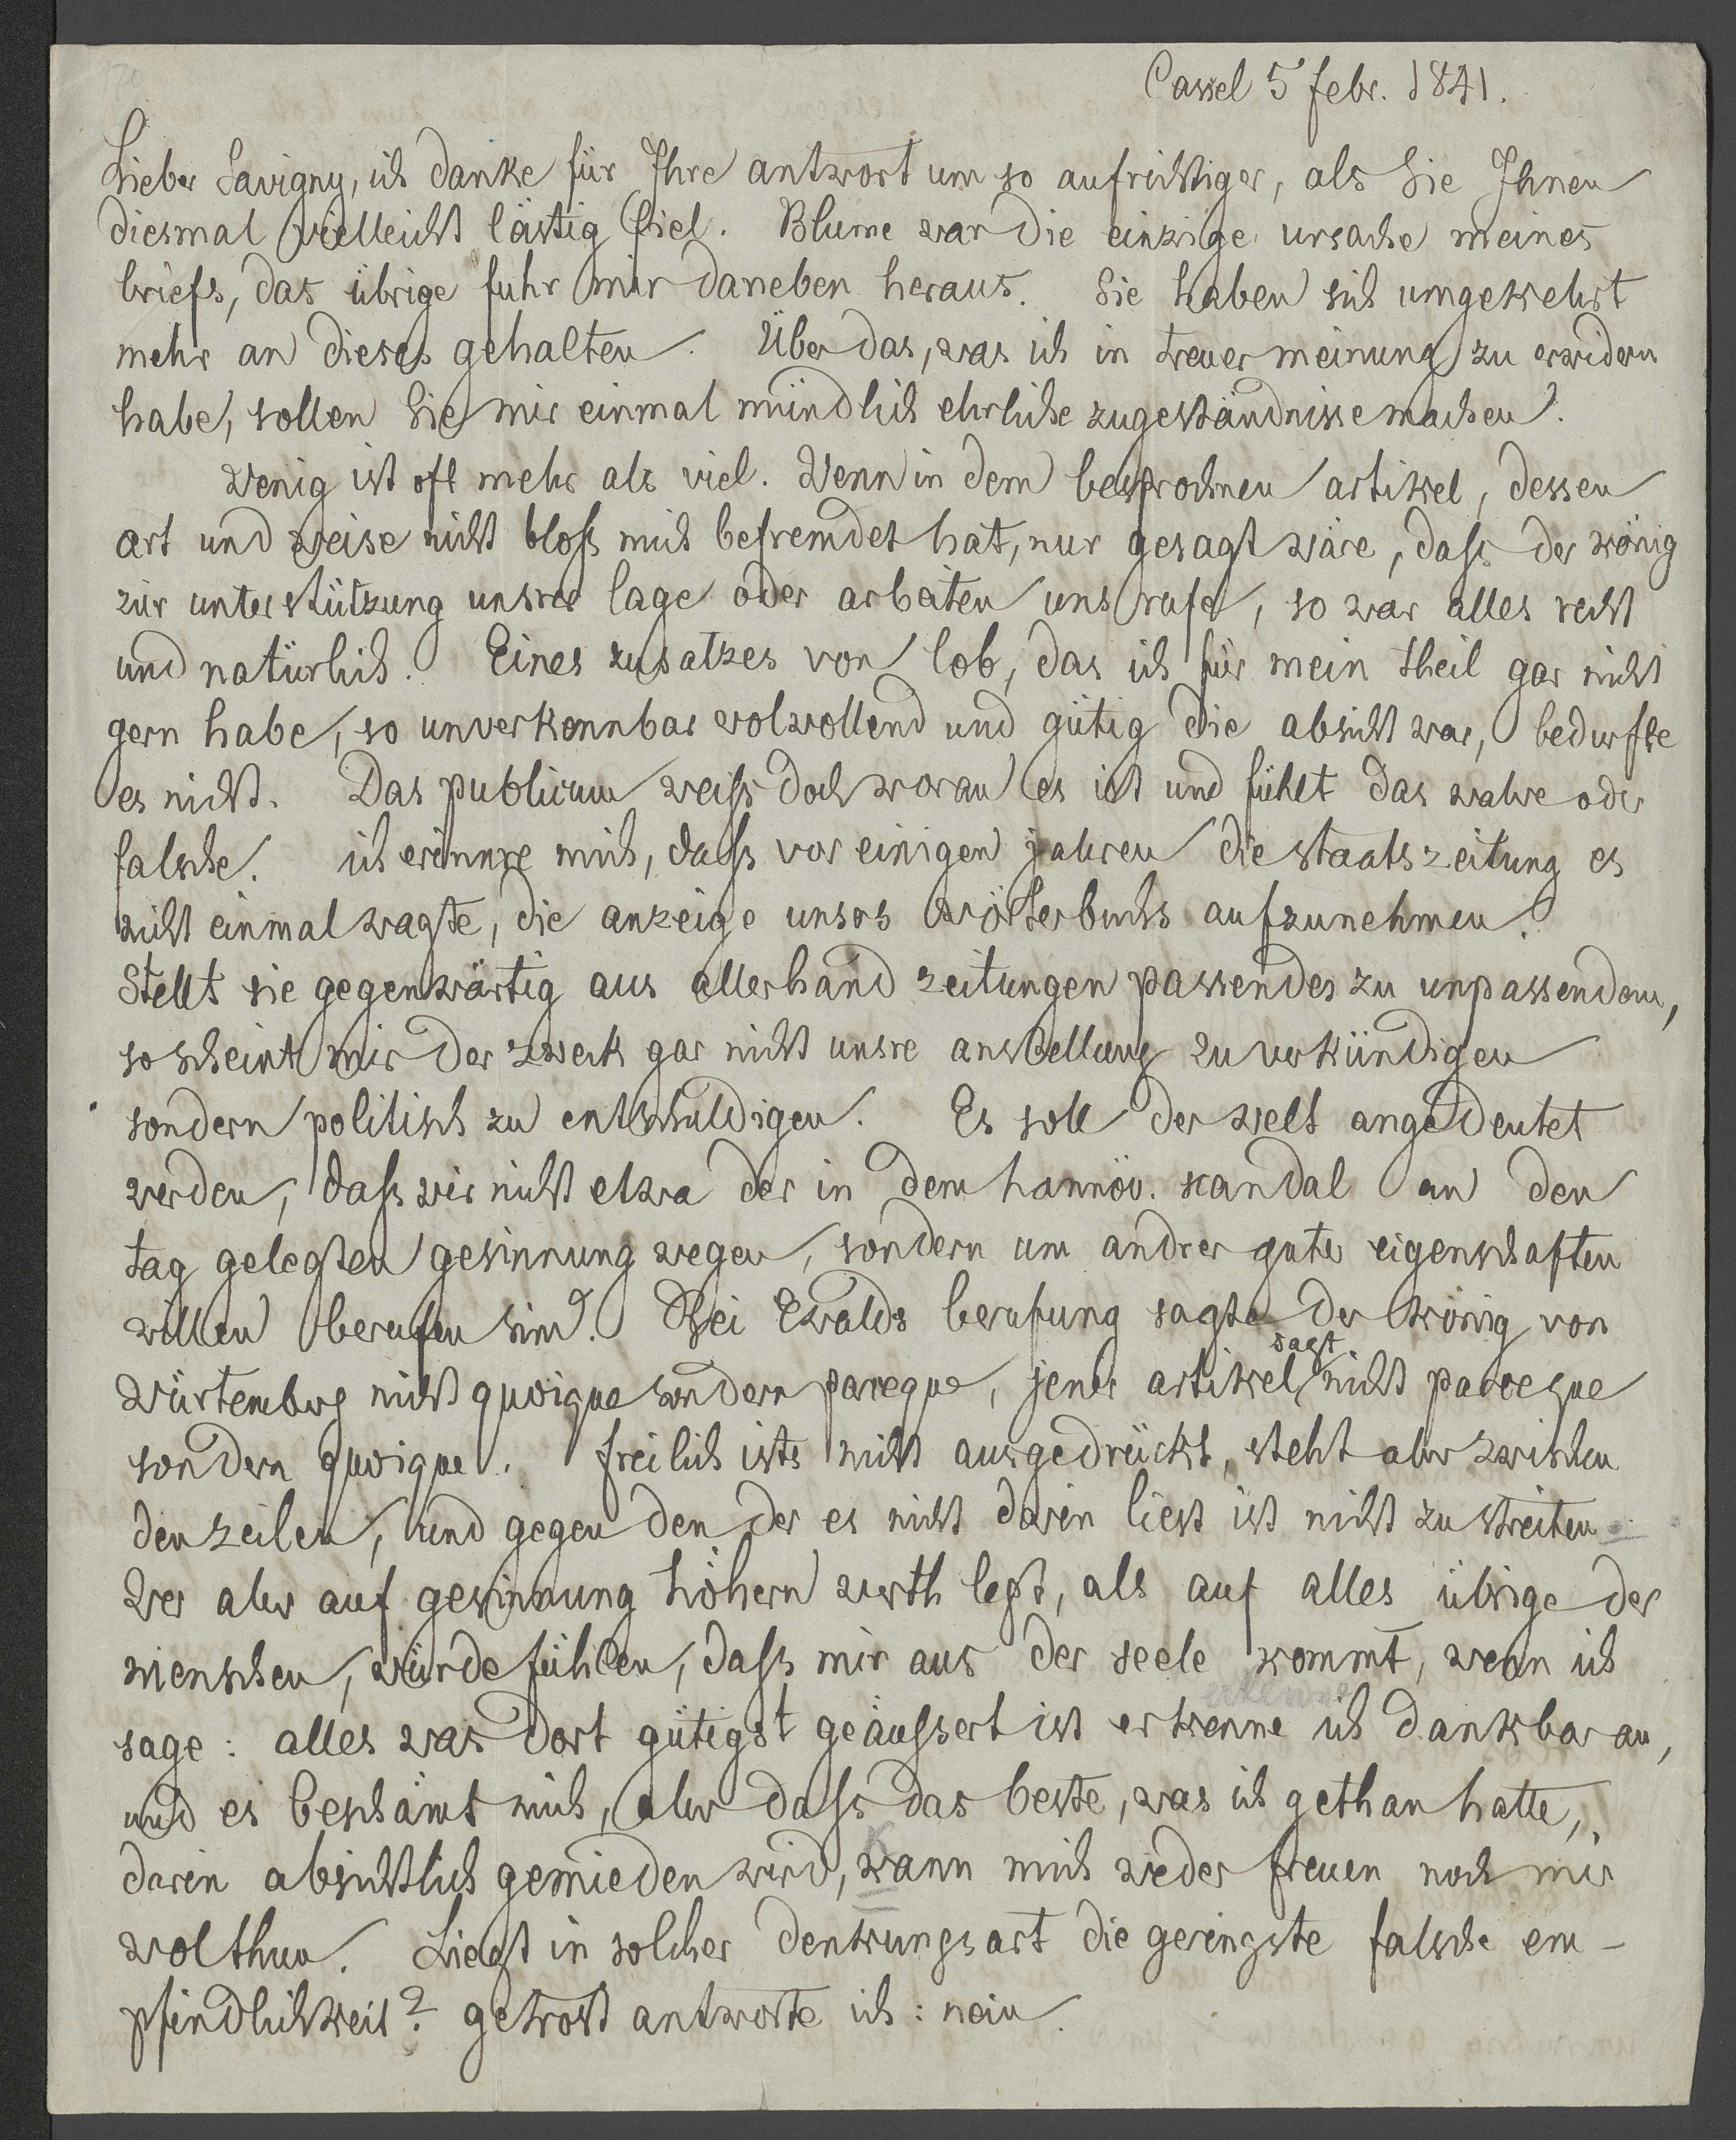 Cassel 5 febr. 1841.
Lieber Savigny, ich danke für Ihre antwort um so aufrichtiger, als Sie Ihnen
diesmal vielleicht lästig fiel. Blume war die einzige ursache meines
briefs, das übrige fuhr mir daneben heraus. Sie haben sich umgekehrt
mehr an dieses gehalten. Über das, was ich in treuer meinung zu erwidern
habe, sollen Sie mir einmal mündlich ehrliche zugeständnisse machen.
Wenig ist oft mehr als viel. Wenn in dem besprochnen artikel, dessen
art und weise nicht bloß mich befremdet hat, nur gesagt wäre, daß der könig
zur unterstützung unsrer lage oder arbeiten uns rufe, so war alles recht
und natürlich. Eines zusatzes von lob, das ich für mein theil gar nicht
gern habe, so unverkennbar wolwollend und gütig die absicht war, bedurfte
es nicht. Das publicum weiß doch woran es ist und fühlt das wahre oder
falsche. ich erinnre mich, daß vor einigen jahren die staatszeitung es
nicht einmal wagte, die anzeige unsres wörterbuchs aufzunehmen.
Stellt sie gegenwärtig aus allerhand zeitungen passendes zu unpassendem,
so scheint mir der zweck gar nicht unsre anstellung zu verkündigen
sondern politisch zu entschuldigen. Es soll der welt angedeutet
werden, daß wir nicht etwa der in dem hannöv. skandal an den
tag gelegten gesinnung wegen, sondern um andrer guter eigenschaften
willen berufen sind. Bei Ewalds berufung sagte der könig von
Würtemberg nicht quoique sondern parceque, jener artikel sagt nicht parceque
sondern quoique. freilich ists nicht ausgedrückt, steht aber zwischen
den zeilen, und gegen den der es nicht darin liest ist nicht zu streiten.
Wer aber auf gesinnung höhern werth legt, als auf alles übrige der
menschen, würde fühlen, daß mir aus der seele kommt, wenn ich
sage: alles was dort gütigst geäußert ist erkenne ich dankbar an,
und es beschämt mich, aber daß das beste, was ich gethan hatte,
darin absichtlich gemieden wird, kann mich weder freuen noch mir
wolthun. Liegt in solcher denkungsart die geringste falsche em-
pfindlichkeit? getrost antworte ich: nein.